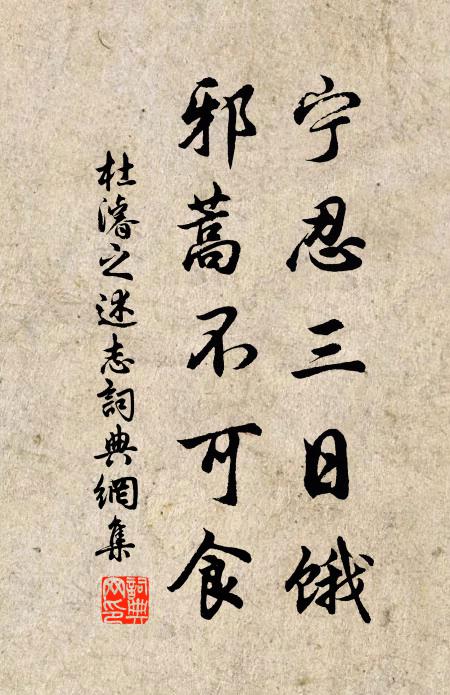 宁忍三日饿
邪蒿不可食
杜濬之述志詞典網集
詞典網印